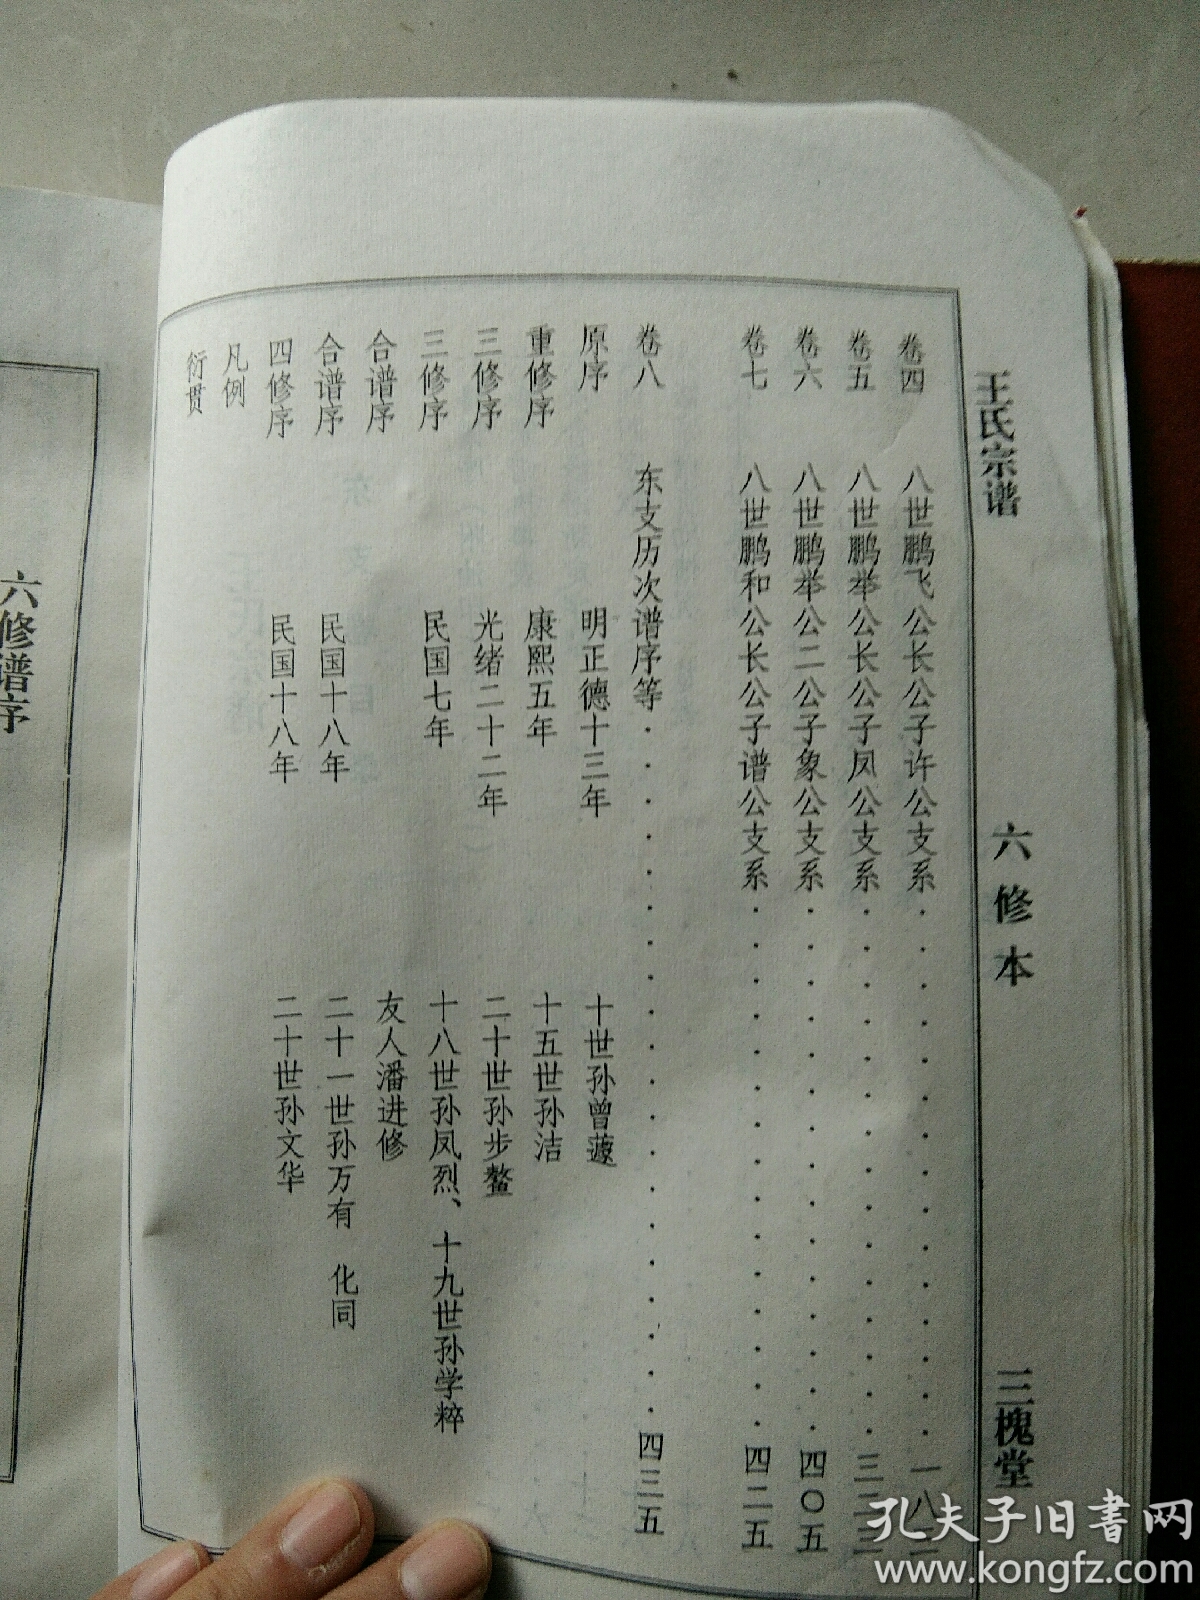 王氏宗谱 六修本 三槐堂
卷四 八世鹏飞公长公子许公支系 · · · · · · · · 一八
卷五 八世鹏举公长公子凤公支系 · · · · · · · · 三三
卷六 八世鹏举公二公子象公支系 · · · · · · · · 四〇五
卷七 八世鹏和公长公子谱公支系 · · · · · · · · 四二五
卷八 东支历次谱序等 · · · · · · · · · · · 四三五
原序 明正德十三年 十世孙曾蘧
重修序 康熙五年 十五世孙洁
三修序 光绪二十二年 二十世孙步鳌
三修序 民国七年 十八世孙凤烈、十九世孙学粹
合谱序 友人潘进修
合谱序 民国十八年 二十一世孙万有 化同
四修序 民国十八年 二十世孙文华
凡例
衍贯
六修谱序
孔夫子旧書网
www.kongfz.com